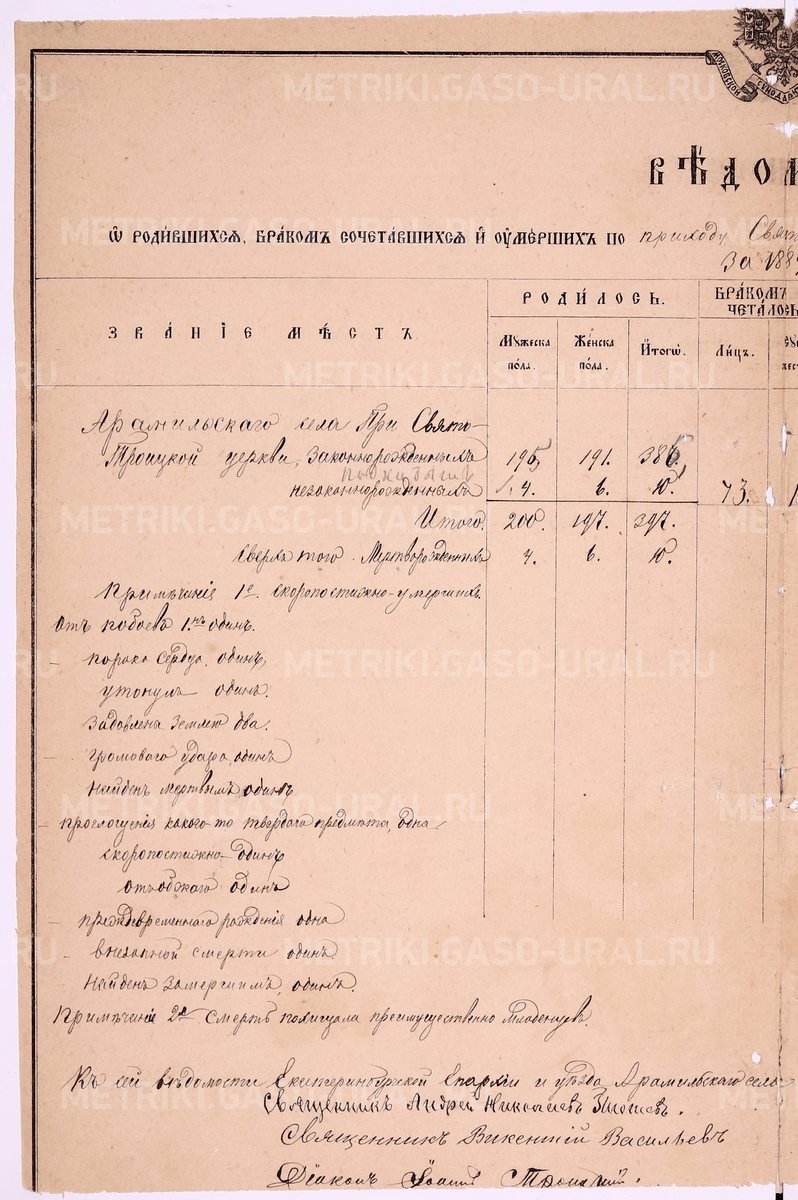 МОСКОВСКОЙ СѴНОДАЛ
ВѢДОМ
Ѡ РОДИ́ВШИХСѦ, БРА́КОМЪ СОЧЕТА́ВШИХСѦ И҆ ОУ҆МЕ́РШИХЪ ПО приходу Свят
За 188
ЗВА́НІЕ МѢ́СТЪ
РОДИ́ЛОСЬ.
БРА́КОМЪ
ЧЕТА́ЛОСЬ
Мꙋ́жеска по́ла.
Же́нска по́ла.
И҆тогѡ̀.
Ли́цъ.
Арамильскаго села при Свято-
Троицкой церкви, законнорожденныхъ 195, 191. 386,
незаконнорожденныхъ 4. 6. 10. 73.
Итого. 200. 197. 397.
Сверхъ того Мертворожденныхъ 4. 6. 10.
Примѣчаніе 1е. скоропостижно-умершихъ.
Отъ побоевъ 1.нъ одинъ.
– порока сердца, одинъ,
утонулъ одинъ.
Задавлены землею два.
– громоваго удара, одинъ
Найденъ мертвымъ, одинъ,
– проглощенія какого-то твердаго предмѣта, одна
скоропостижно – одинъ
отъ обжога одинъ
– преждевременнаго рожденія одна
– внезапной смерти одинъ.
Найденъ замерзшимъ, одинъ.
Примѣчаніе 2е Смерть похищала преимущественно младенцевъ.
Къ сей вѣдомости Екатеринбургской Епархіи и уѣзда, Арамильскаго села
Священникъ Андрей Николаевъ
Священникъ Викентій Васильевъ
Діаконъ Іоаннъ Троицкій.
METRIKI.GASO-URAL.RU